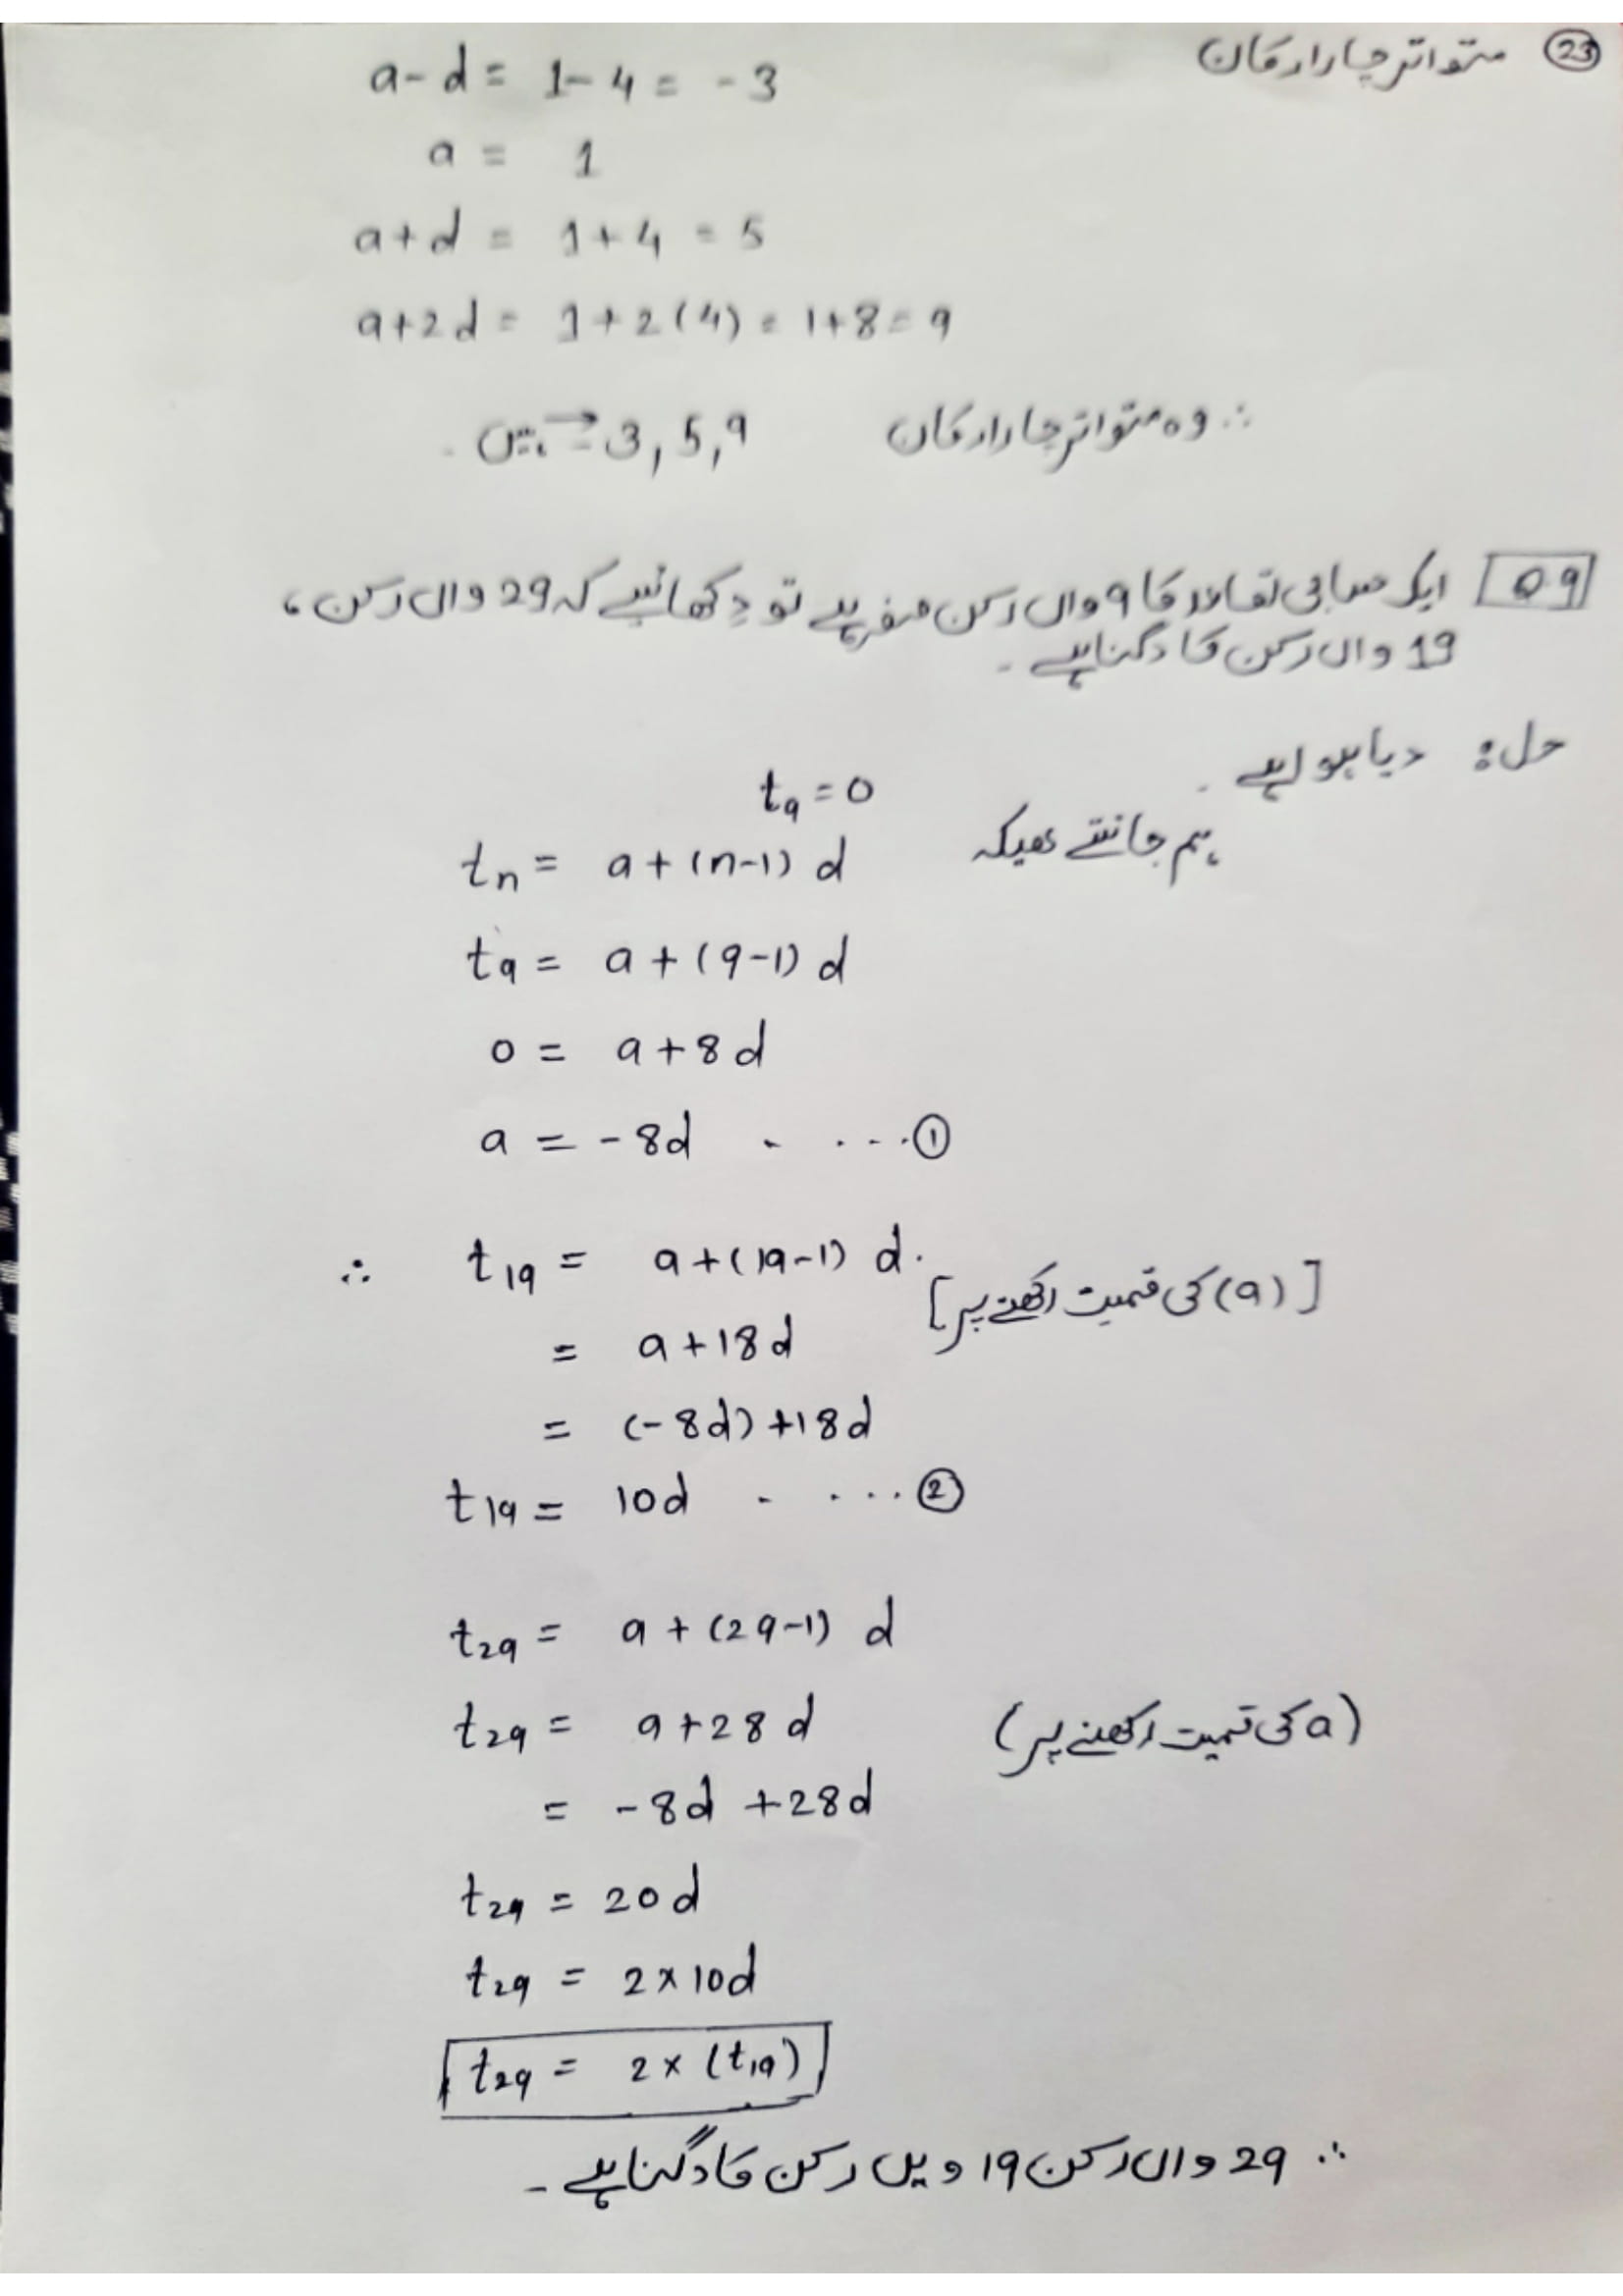 23 متواتر چار ارکان
a-d = 1-4 = -3
a = 1
a+d = 1+4 = 5
a+2d = 1+2(4) = 1+8 = 9
∴ وہ متواتر چار ارکان 3, 5, 9 ہیں۔
Q9 ایک حسابی تصاعد کا 9 واں رکن صفر ہے تو دکھائیے کہ 29 واں رکن،
19 واں رکن کا دگنا ہے۔
حل: دیا ہوا ہے۔
t9 = 0
ہم جانتے ھیکہ
tn = a + (n-1) d
t9 = a + (9-1) d
0 = a + 8d
a = -8d - ...①
∴ t19 = a + (19-1) d.
[(a) کی قمیت رکھنے پر]
= a + 18d
= (-8d) + 18d
t19 = 10d - ...②
t29 = a + (29-1) d
t29 = a + 28d (a کی قمیت رکھنے پر)
= -8d + 28d
t29 = 20d
t29 = 2 × 10d
t29 = 2 × (t19)
∴ 29 واں رکن 19 ویں رکن کا دگنا ہے۔